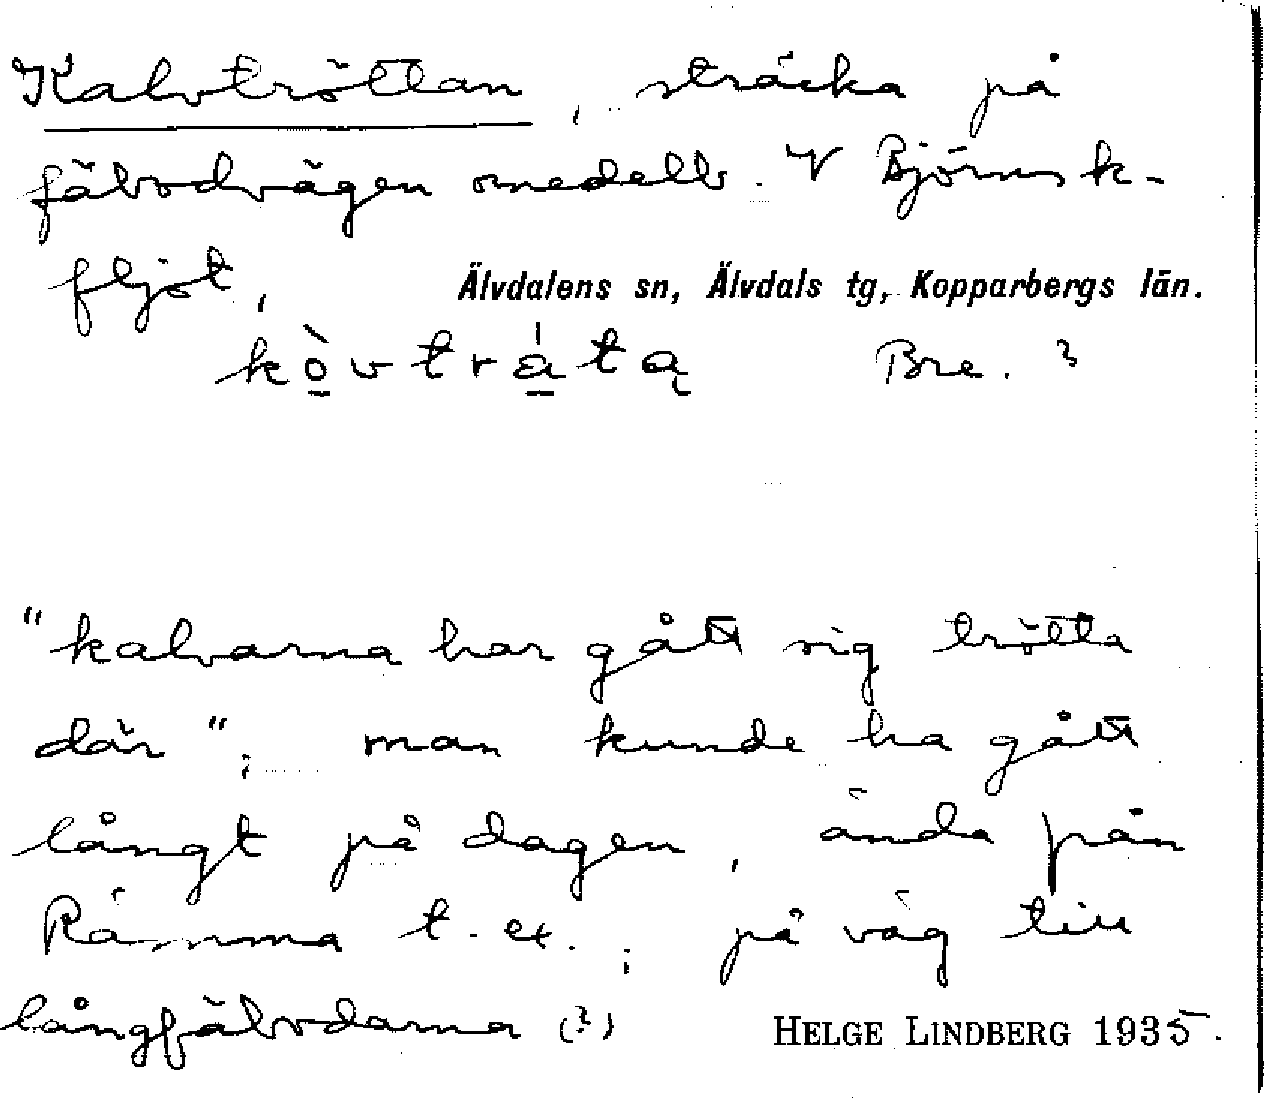 Kalvtröttan, sträcka på
fäbodvägen omedelb. V Björnsk-
fljöt,
Älvdalens sn, Älvdals tg, Kopparbergs län.
kò̱vtrá̱tą Bre. ?
"kalvarna har gått sig trötta
där"; man kunde ha gått
långt på dagen, ända från
Råmma t. ex.; på väg till
långfäbodarna (?)
HELGE LINDBERG 1935.